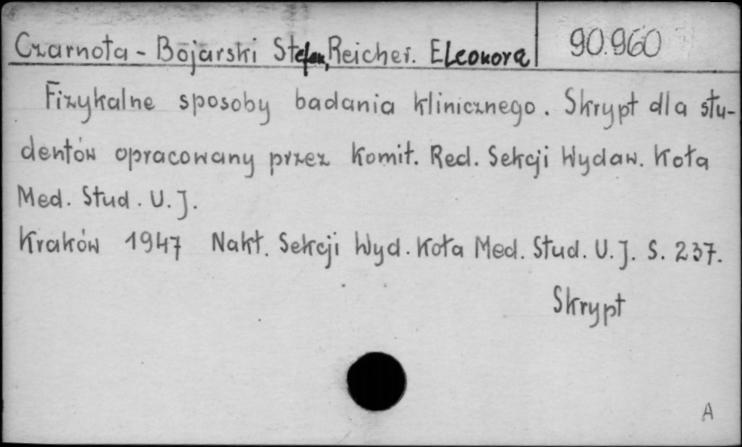 Czarnota - Bojarski Stefan, Reicher. Eleonora 90.960
Fizykalne sposoby badania klinicznego. Skrypt dla stu-
dentów opracowany przez Komit. Red. Sekcji Wydaw. Koła
Med. Stud. U.J.
Kraków 1947 Nakł. Sekcji Wyd. Koła Med. Stud. U.J. S. 237.
Skrypt
A